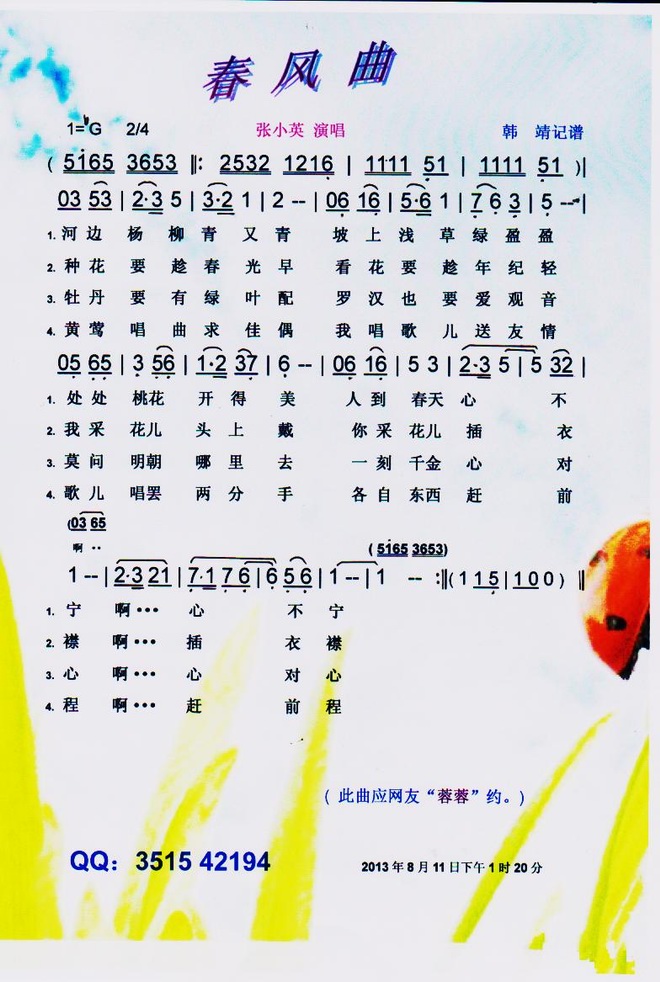 春风曲
1=♭G 2/4 张小英 演唱 韩 靖记谱
( 5165 3653 ‖: 2532 1216 | 1111 51 | 1111 51 )|
03 53 | 2·3 5 | 3·2 1 | 2 -- | 06 16 | 5·6 1 | 7 6 3 | 5 -- |
1. 河边 杨柳青又青 坡上浅草绿盈盈
2. 种花 要趁春光早 看花要趁年纪轻
3. 牡丹 要有绿叶配 罗汉也要爱观音
4. 黄莺 唱曲求佳偶 我唱歌儿送友情
05 65 | 3 56 | 1·2 37 | 6 -- | 06 16 | 5 3 | 2·3 5 | 5 32 |
1. 处处 桃花 开得美 人到 春天心 不
2. 我采 花儿 头上戴 你采 花儿插 衣
3. 莫问 明朝 哪里去 一刻 千金心 对
4. 歌儿 唱罢 两分手 各自 东西赶 前
(03 65
啊··
( 5165 3653)
1 -- | 2·3 21 | 7·1 76 | 6 56 | 1 -- | 1 -- :‖( 1 15 | 100 ) ‖
1. 宁 啊··· 心 不宁
2. 襟 啊··· 插 衣襟
3. 心 啊··· 心 对心
4. 程 啊··· 赶 前程
( 此曲应网友“蓉蓉”约。)
QQ: 3515 42194
2013年8月11日下午1时20分